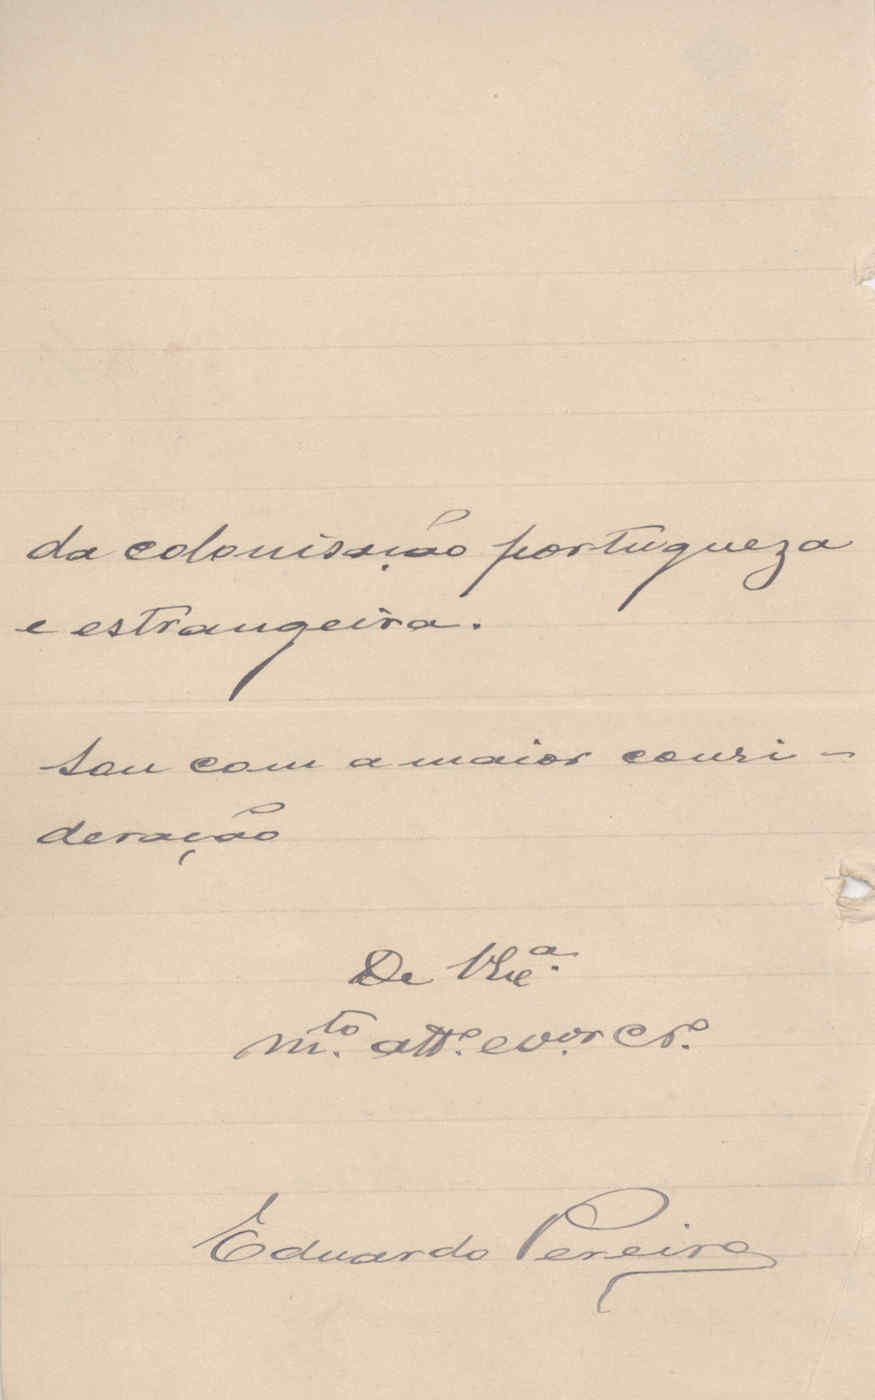 da colonisação portugueza
e estrangeira.
Sou com a maior consi-
deração
De V Exª.
m.to att.º e v.or Cr.º
Eduardo Pereira